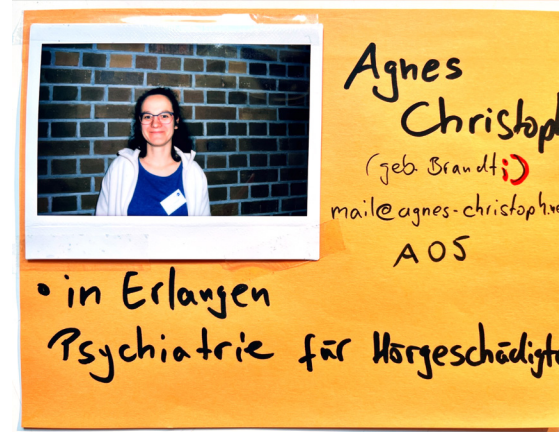 Agnes
Christoph
(geb. Brandt ;)
mail@agnes-christoph.ne
A05
• in Erlangen
Psychiatrie für Hörgeschädigte